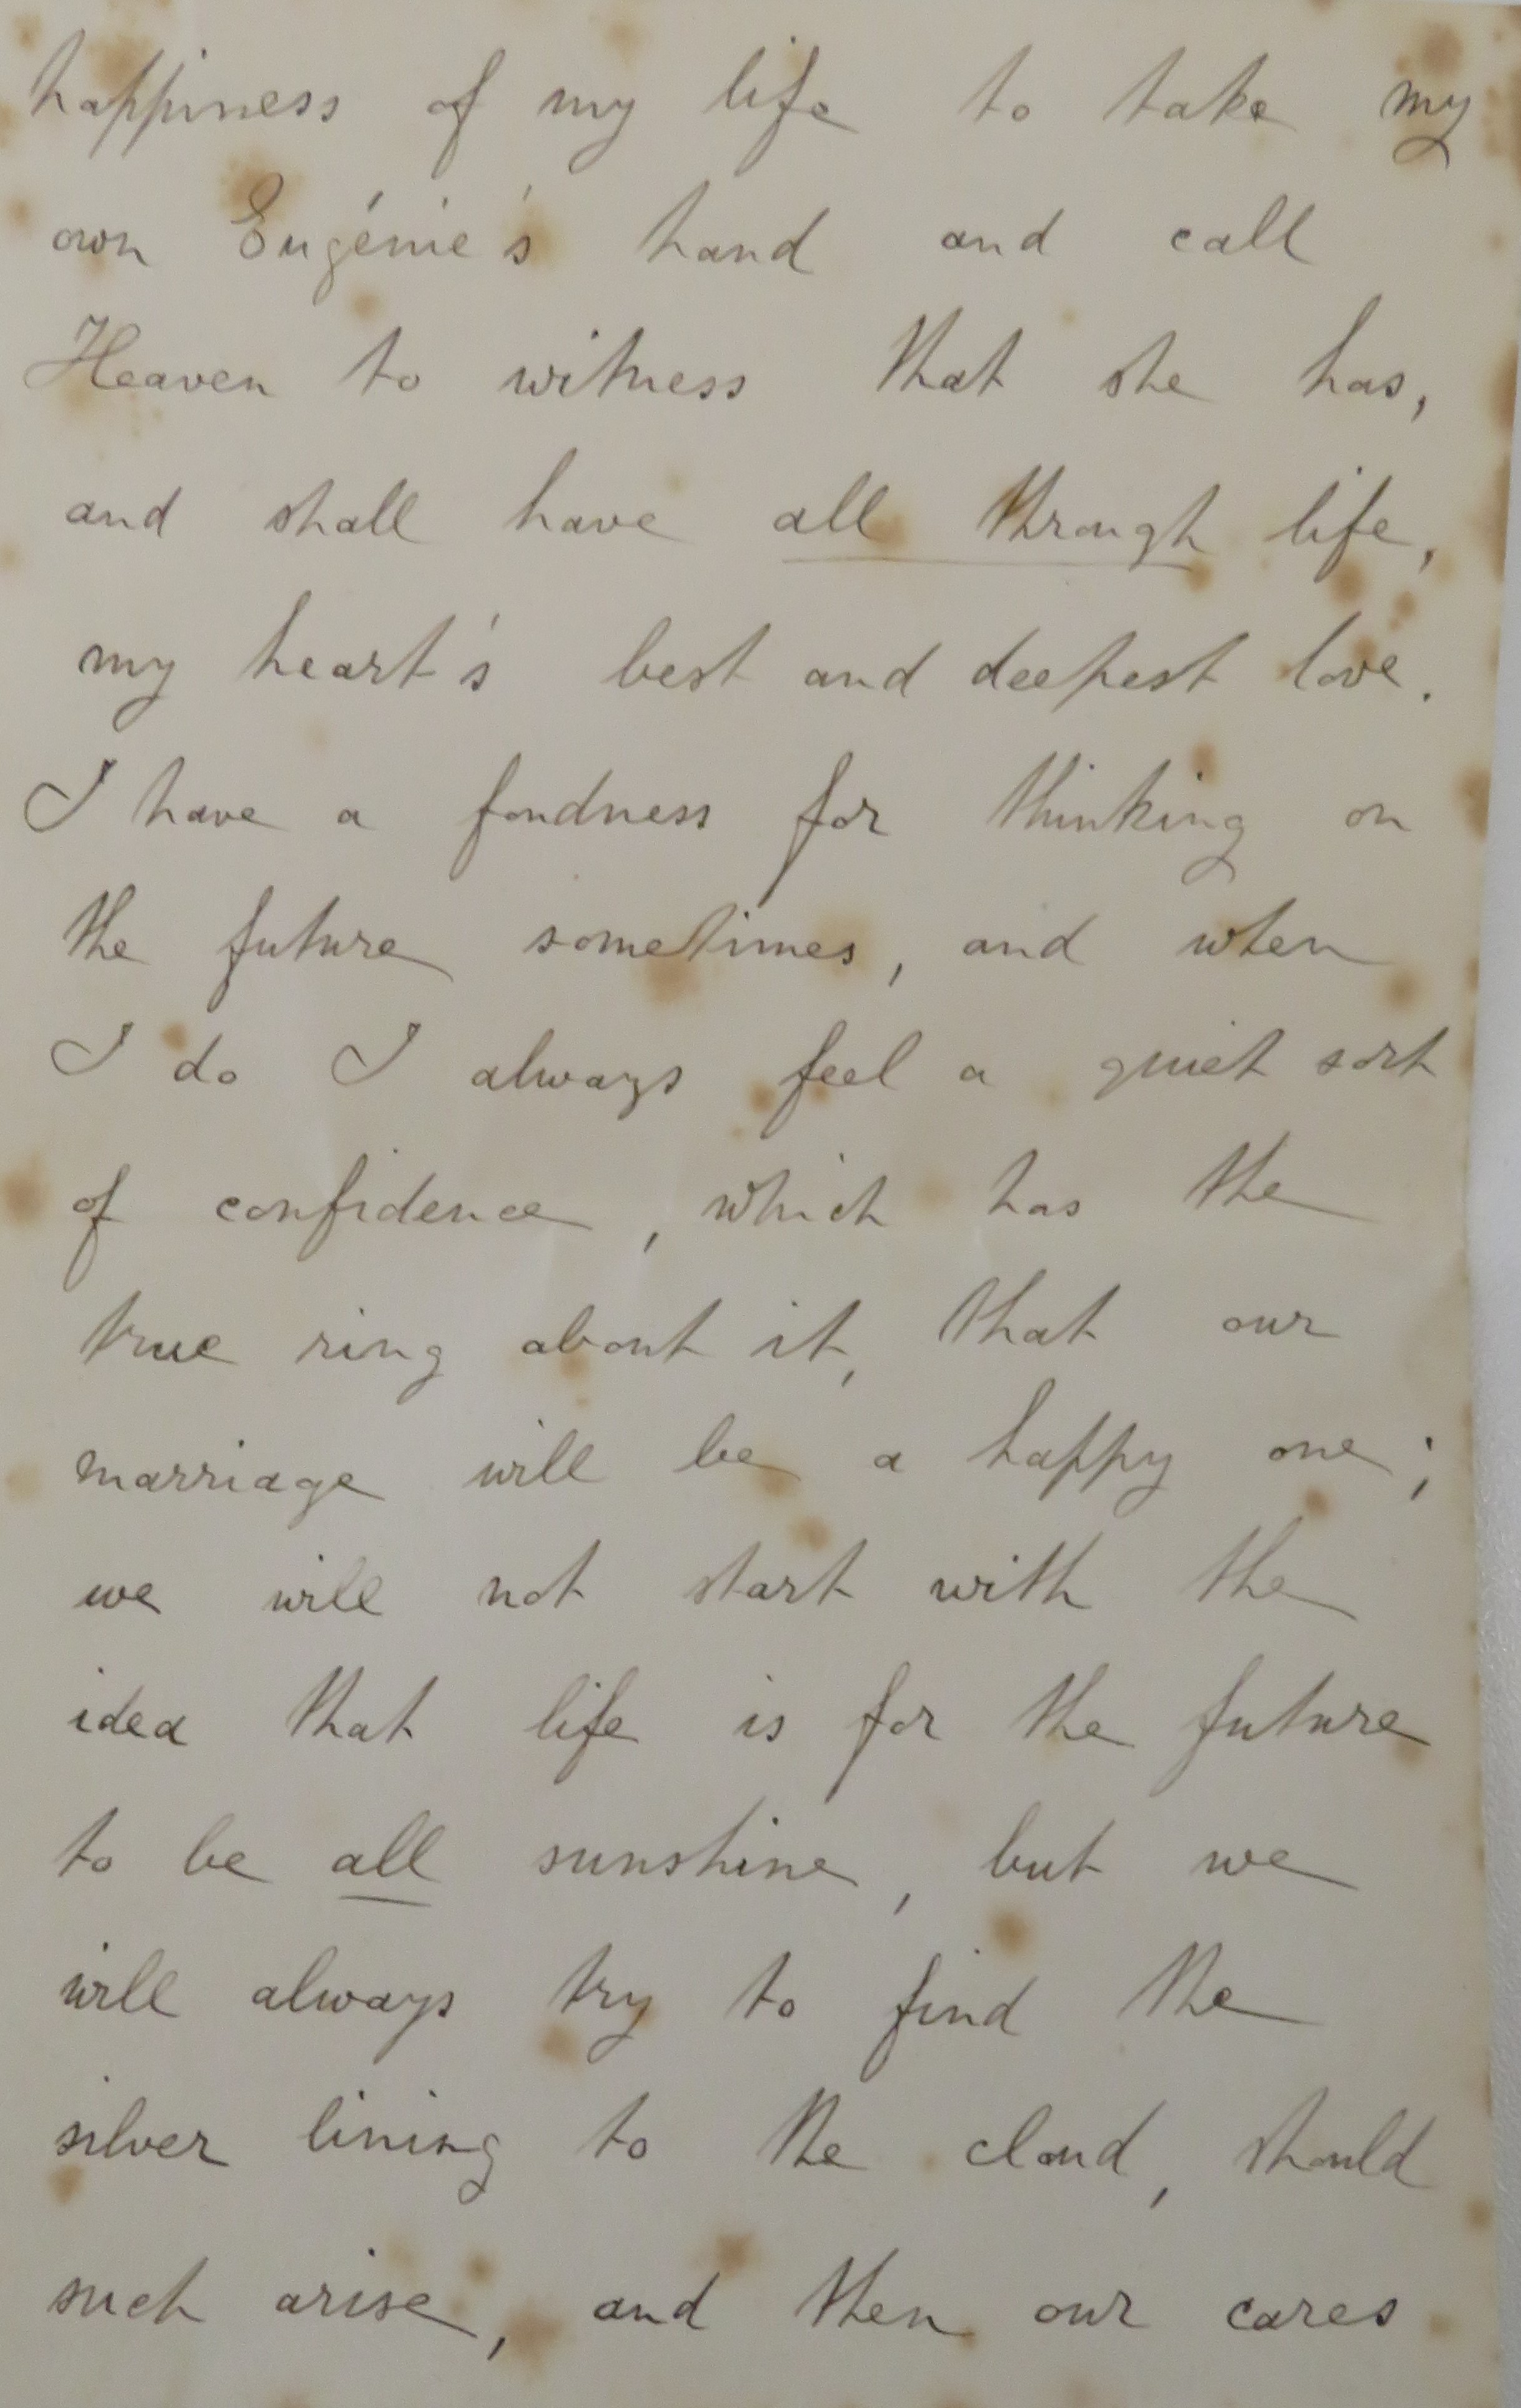 happiness of my life to take my
own Eugénie's hand and call
Heaven to witness that she has,
and shall have all through life,
my heart's best and deepest love.
I have a fondness for thinking on
the future sometimes, and when
I do I always feel a quiet sort
of confidence, which has the
true ring about it, that our
marriage will be a happy one;
we will not start with the
idea that life is for the future
to be all sunshine, but we
will always try to find the
silver lining to the cloud, should
such arise, and then our cares